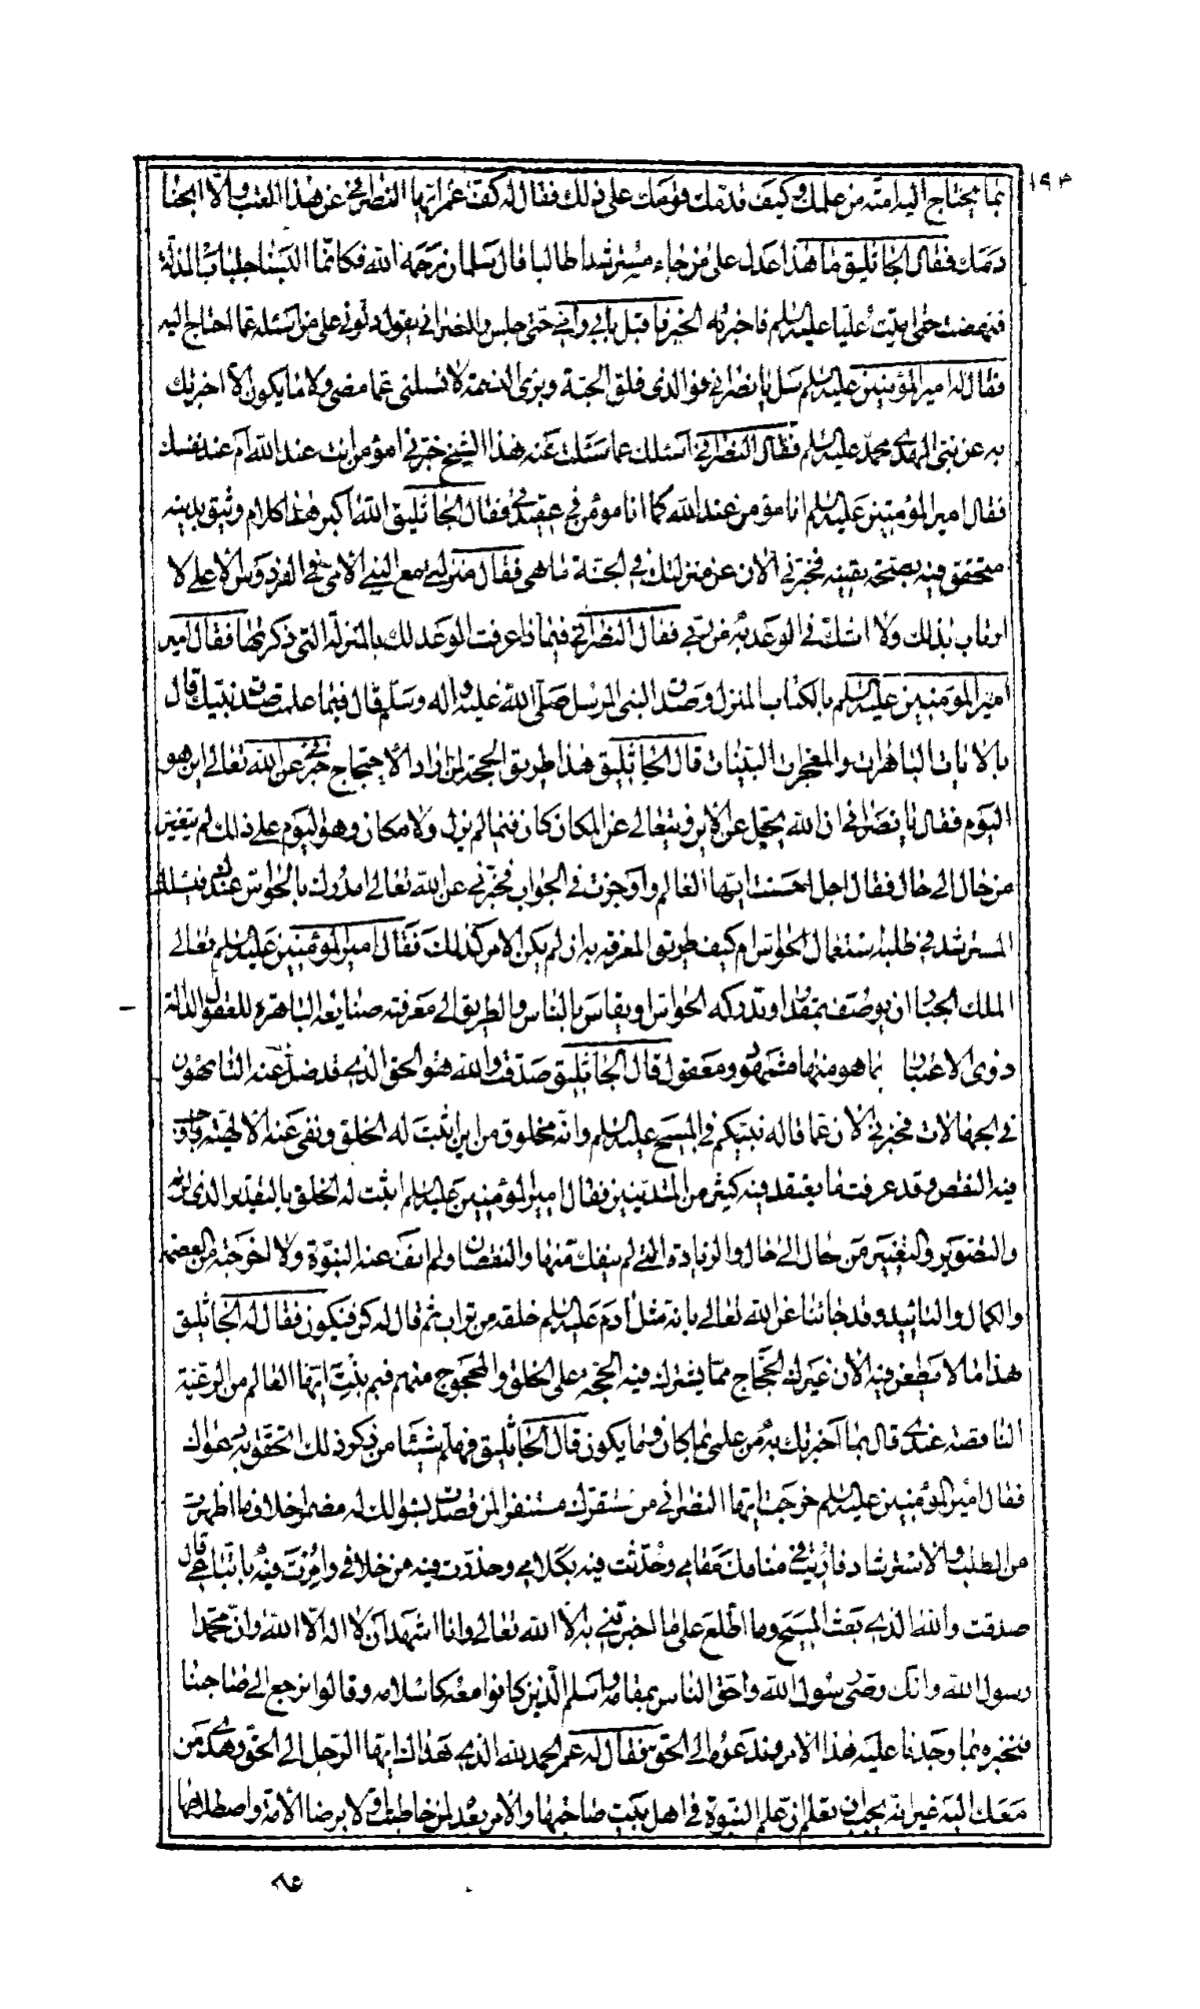 ١٩٣
بما يحتاج اليه امته من علمك وكيف قدمك قومك على ذلك فقال له كف عمر ايها النصراني عن هذا العتب والا ابحنا
دمك فقال الجاثليق ما هذا عدل على من جاء مسترشدا طالبا قال سلمان رحمه الله فكانما البسنا جلباب المذلة
فنهضت حتى اتيت عليا عليه السلم فاخبرته الخبر فاقبل بابي وامي حتى جلس والنصراني يقول دلوني على من اسئله عما احتاج اليه
فقال له امير المؤمنين عليه السلم سل يا نصراني فو الذي فلق الحبة وبرئ النسمة لا تسئلني عما مضى ولا ما يكون الا اخبرتك
به عن نبي الهدى محمد عليه السلم فقال النصراني اسئلك عما سئلت عنه هذا الشيخ خبرني امؤمن انت عند الله ام عند نفسك
فقال امير المؤمنين عليه السلم انا مؤمن عند الله كما انا مؤمن في عقيدتي فقال الجاثليق الله اكبر هذا كلام وثيق بدينه
متحقق فيه بصحة يقينه فخبرني الان عن منزلتك في الجنة ما هي فقال منزلتي مع النبي الامي في الفردوس الاعلى لا
ارتاب بذلك ولا اشك في الوعد به من ربي فقال النصراني فبماذا عرفت الوعد لك بالمنزلة التي ذكرتها فقال امير
امير المؤمنين عليه السلم بالكتاب المنزل وصدق النبي المرسل صلى الله عليه واله وسلم قال فبما علمت صدق نبيك قال
بالايات الباهرات والمعجزات البينات قال الجاثليق هذا طريق الحجة لمن اراد الاحتجاج خبرني عن الله تعالى اين هو
اليوم فقال يا نصراني ان الله يجل عن الاين ويتعالى عن المكان كان فيما لم يزل ولا مكان وهو اليوم على ذلك لم يتغير
من حال الى حال فقال اجل احسنت ايها العالم واوجزت في الجواب فخبرني عن الله تعالى امدرك بالحواس عندك فيسلك
المسترشد في طلبه استعمال الحواس ام كيف طريق المعرفة به ان لم يكن الامر كذلك فقال امير المؤمنين عليه السلم تعالى
الملك الجبار ان يوصف بمقدار او تدركه الحواس او يقاس بالناس والطريق الى معرفته صنايعه الباهرة للعقول الدالة
ذوي الاعتبار بما هو منها مشهود ومعقول قال الجاثليق صدقت والله هو الحق الذي قد ضل عنه التائهون
في الجهالات فخبرني الان عما قاله نبيكم في المسيح عليه السلم وانه مخلوق من اين اثبت له الخلق ونفى عنه الالهية واوجب
فيه النقص وقد عرفت ما يعتقد فيه كثير من المتدينين فقال امير المؤمنين عليه السلم اثبت له الخلق بالتقدير الذي لزمه
والتصوير والتغيير من حال الى حال والزيادة التي لم ينفك منها والنقصان ولم انف عنه النبوة ولا اخرجته من العصمة
والكمال والتاييد وقد جائنا عن الله تعالى بانه مثل ادم عليه السلم خلقه من تراب ثم قال له كن فيكون فقال له الجاثليق
هذا ما لا مطعن فيه الان غير ان الحجاج مما يشترك فيه الحجة على الخلق والمحجوج منهم فبم بنت ايها العالم من الرعية
الناقصة عندي قال بما اخبرتك به من علمي بما كان وما يكون قال الجاثليق فهلم شيئا من ذكر ذلك اتحقق به دعواك
فقال امير المؤمنين عليه السلم خرجت ايها النصراني من مستقرك مستنفرا لمن قصدت بسؤالك له مضمرا خلاف ما اظهرت
من الطلب والاسترشاد فاريت في منامك مقامي وحدثت فيه بكلامي وحذرت فيه من خلافي وامرت فيه باتباعي قال
صدقت والله الذي بعث المسيح وما اطلع على ما اخبرتني به الا الله تعالى وانا اشهد ان لا اله الا الله وان محمدا
رسول الله وانك وصي رسول الله واحق الناس بمقامه واسلم الذين كانوا معه كاسلامه وقالوا نرجع الى صاحبنا
فنخبره بما وجدنا عليه هذا الامر وندعوه الى الحق فقال له عمر الحمد لله الذي هداك ايها الرجل الى الحق وهدى من
معك اليه غير انه يجب ان تعلم ان علم النبوة في اهل بيت صاحبها والامر بعده لمن خاطبت اولا برضا الامة واصطلاحها